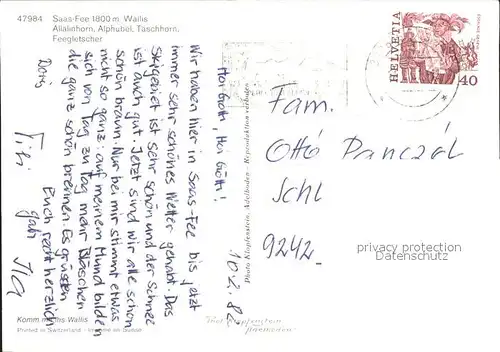 47984 Saas-Fee 1800 m Wallis
Allalinhorn, Alphubel, Täschhorn,
Feegletscher
Hoi Gotti, Hoi Götti!
Wir haben hier in Saas-Fee bis jetzt
immer sehr schönes Wetter gehabt. Das
Skigebiet ist sehr schön und der Schnee
ist auch gut. Jetzt sind wir alle schon
schön braun. Nur bei mir stimmt etwas
nicht so ganz: auf meinem Mund bilden
sich von Tag zu Tag mehr Bläschen
die ganz schön brennen. Es grüssten
Euch recht herzlich
Gabi
Doris
10.2.82
Fam.
Otto Panczál
Schl
9242
HELVETIA
40
Photo Klopfenstein, Adelboden - Reproduktion verboten
Komm ins Wallis
Printed in Switzerland - Imprimé en Suisse
Photo Klopfenstein
Adelboden
privacy protection
by AnsichtskartenVersand.com